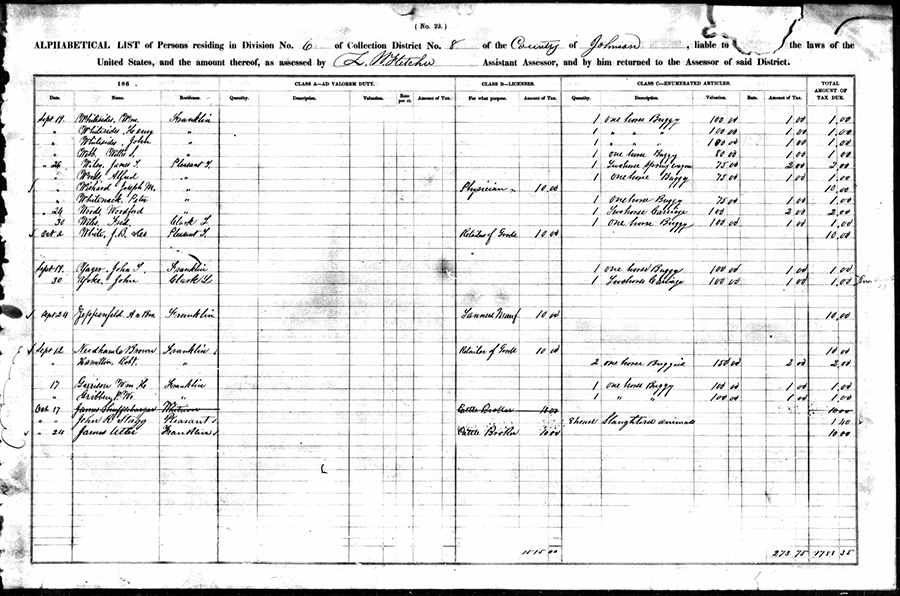 ( No. 23. )
ALPHABETICAL LIST of Persons residing in Division No. 6 of Collection District No. 8 of the County of Johnson, liable to the laws of the
United States, and the amount thereof, as assessed by Assistant Assessor, and by him returned to the Assessor of said District.
186 . CLASS A—AD VALOREM DUTY. CLASS B—LICENSES. CLASS C—ENUMERATED ARTICLES. TOTAL AMOUNT OF TAX DUE.
Date. Name. Residence. Quantity. Description. Valuation. Rate per ct. Amount of Tax. For what purpose. Amount of Tax. Quantity. Description. Valuation. Rate. Amount of Tax.
Sept 19. Whitesides, Wm. Franklin 1 one horse Buggy 100 00 1 00 1.00
" Whitesides, Henry " 1 " " " 100 00 1 00 1.00
" Whitesides, John " 1 " " " 100 00 1 00 1.00
" Webb, Willis S. " 1 one horse Buggy 80 00 1 00 1.00
" 26 Wiley, James T. Pleasant T. 1 Twohorse Spring wagon 75 00 2 00 2.00
" Alfred " 1 one horse Buggy 75 00 1 00 1.00
" Joseph M. " Physician 10.00 10.00
" Whitenack, Peter " 1 one horse Buggy 75 00 1 00 1.00
" 24 Woods, Woodford " 1 Twohorse Carriage 100 2 00 2.00
30 Fred. Clark T. 1 one horse Buggy 100 00 1 00 1.00
Oct 2 White, J.D. Pleasant T. Retailer of Goods 10 00 10.00
Sept 19. John T. Franklin 1 one horse Buggy 100 00 1 00 1.00
30 Yoke, John Clark T. 1 Twohorse Carriage 100 00 1 00 1.00
Sept 24 Zeppenfeld Franklin 10 00 10.00
Sept 12 Needham & Brown Franklin Retailer of Goods 10 00 10 00
" Hamilton, Robt. " 2 one horse Buggies 150 00 2 00 2.00
17 Garrison Wm H. Franklin 1 one horse Buggy 100 00 1 00 1.00
" " 1 " " 100 00 1 00 1.00
Oct. 17 James Shufflebarger Cattle Broker 10.00 10.00
" " John R. Stagg Pleasant Slaughtered animals 1 40
" 24 James Utter Franklin Cattle Broker 10 00 10.00
1515 00 273 75 1788 35